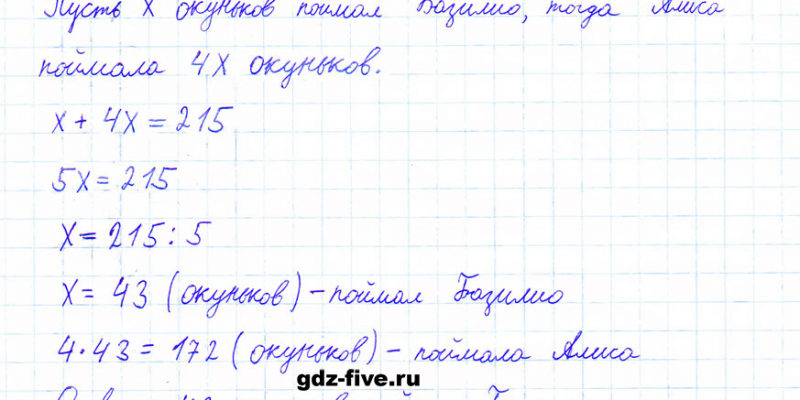 Пусть x окуньков поймал Базилио, тогда Алиса
поймала 4x окуньков.
x + 4x = 215
5x = 215
x = 215 : 5
x = 43 (окуньков) – поймал Базилио
4 · 43 = 172 (окуньков) – поймала Алиса
gdz-five.ru